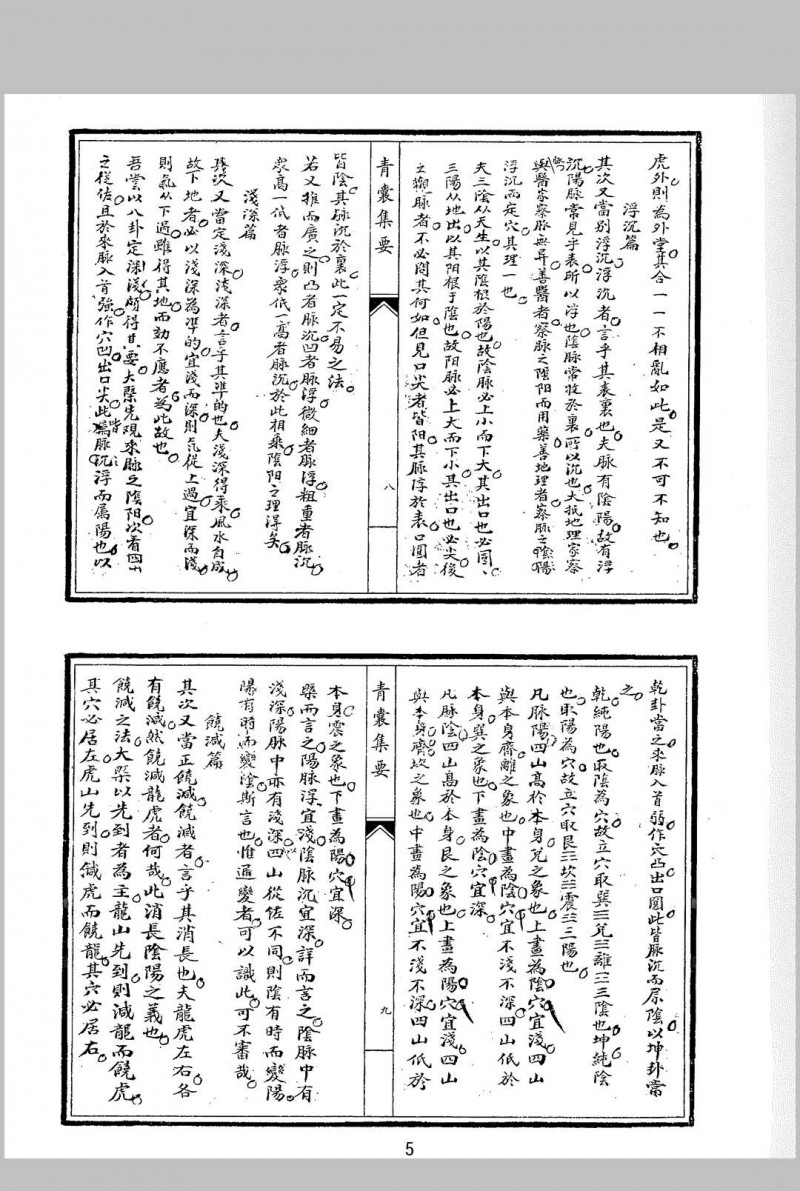 虎外則為外堂其合一一不相亂如此是又不可不知也
浮沉篇
其次又當別浮沉浮沉者言乎其表裏也夫脉有陰陽故有浮
沉陽脉常見乎表所以浮也陰脉常收於裏所以沉也大抵地理家察
與醫家察脉無異善醫者察脉之陰阳而用藥善地理者察脉之陰陽
浮沉而定穴其理一也
夫三陰从天生以其陰根於陽也故陰脉必上小而下大其出口也必圓
三陽从地出以其阳根于陰也故阳脉必上大而下小其出口也必尖後
之覌脉者不必問其何如但見口尖者皆阳其脉浮於表口圓者
青囊集要
八
皆陰其脉沉於裏此一定不易之法
若又推而廣之則凸者脉沉凹者脉浮微細者脉浮粗重者脉沉
衆高一低者脉浮衆低一高者脉沉於此相乘陰阳之理得矣
淺深篇
其次又當定淺深淺深者言乎其準的也夫淺深得乘風水自成
故下地者必以淺深為準的宜淺而深則氣從上過宜深而淺
則氣从下過雖得其地而効不應者為此故也
吾嘗以八卦定深淺頗得其要大槩先观來脉之陰阳次看四山
之從佐且於來脉入首強作穴凹出口尖此皆脉沉浮而属陽也以
乾卦當之來脉入首弱作穴凸出口圓此皆脉沉而属陰以坤卦當
之
乾純陽也取陰為穴故立穴取巽☴兌☱離☲三陰也坤純陰
也取陽為穴故立穴取艮☶坎☵震☳三陽也
凡脉陽四山高於本身兌之象也上畫為陰穴宜淺四山
與本身齊離之象也中畫為陰穴宜不淺不深四山低於
本身巽之象也下畫為陰穴宜深
凡脉陰四山高於本身艮之象也上畫為陽穴宜淺四山
與本身齊坎之象也中畫為陽穴宜不淺不深四山低於
青囊集要
九
本身震之象也下畫為陽穴宜深
槩而言之陽脉浮宜淺陰脉沉宜深詳而言之陰脉中有
淺深陽脉中亦有淺深四山從佐不同則陰有時而變陽
陽有時而變陰斯言也惟通變者可以識此可不審哉
饒減篇
其次又當正饒減饒減者言乎其消長也夫龍虎左右各
有饒減然饒減龍虎者何哉此消長陰陽之義也
饒減之法大槩以先到者為主龍山先到則減龍而饒虎
其穴必居左虎山先到則減虎而饒龍其穴必居右
5